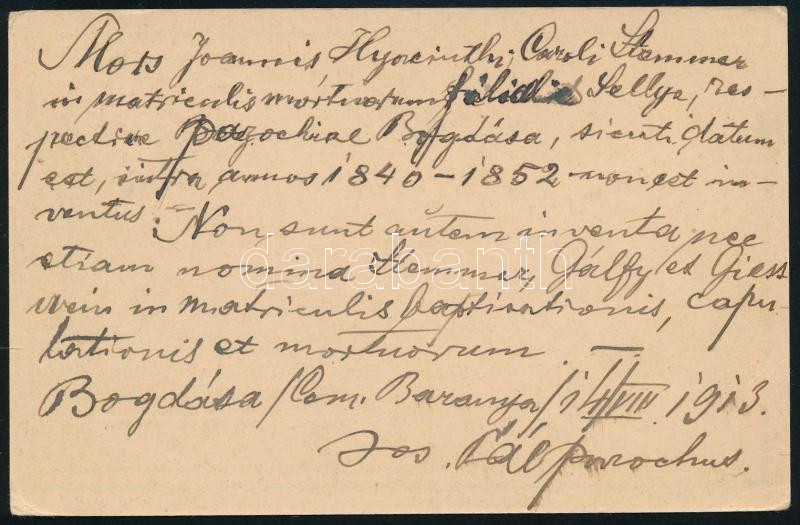 Mors Joannis Hyacinthi, Caroli Stemmer
in matriculis mortuorum filialis Sellye, res-
pective parochiae Bogdása, sicuti datum
est, intra annos 1840–1852 non est in-
ventus. – Non sunt autem inventa nec
etiam nomina Stemmer, Gálfy et Giess
wein in matriculis baptisationis, copu-
lationis et mortuorum. —
Bogdása /Com. Baranya/ 14/VIII. 1913.
Jos. Pál parochus.
darabanth